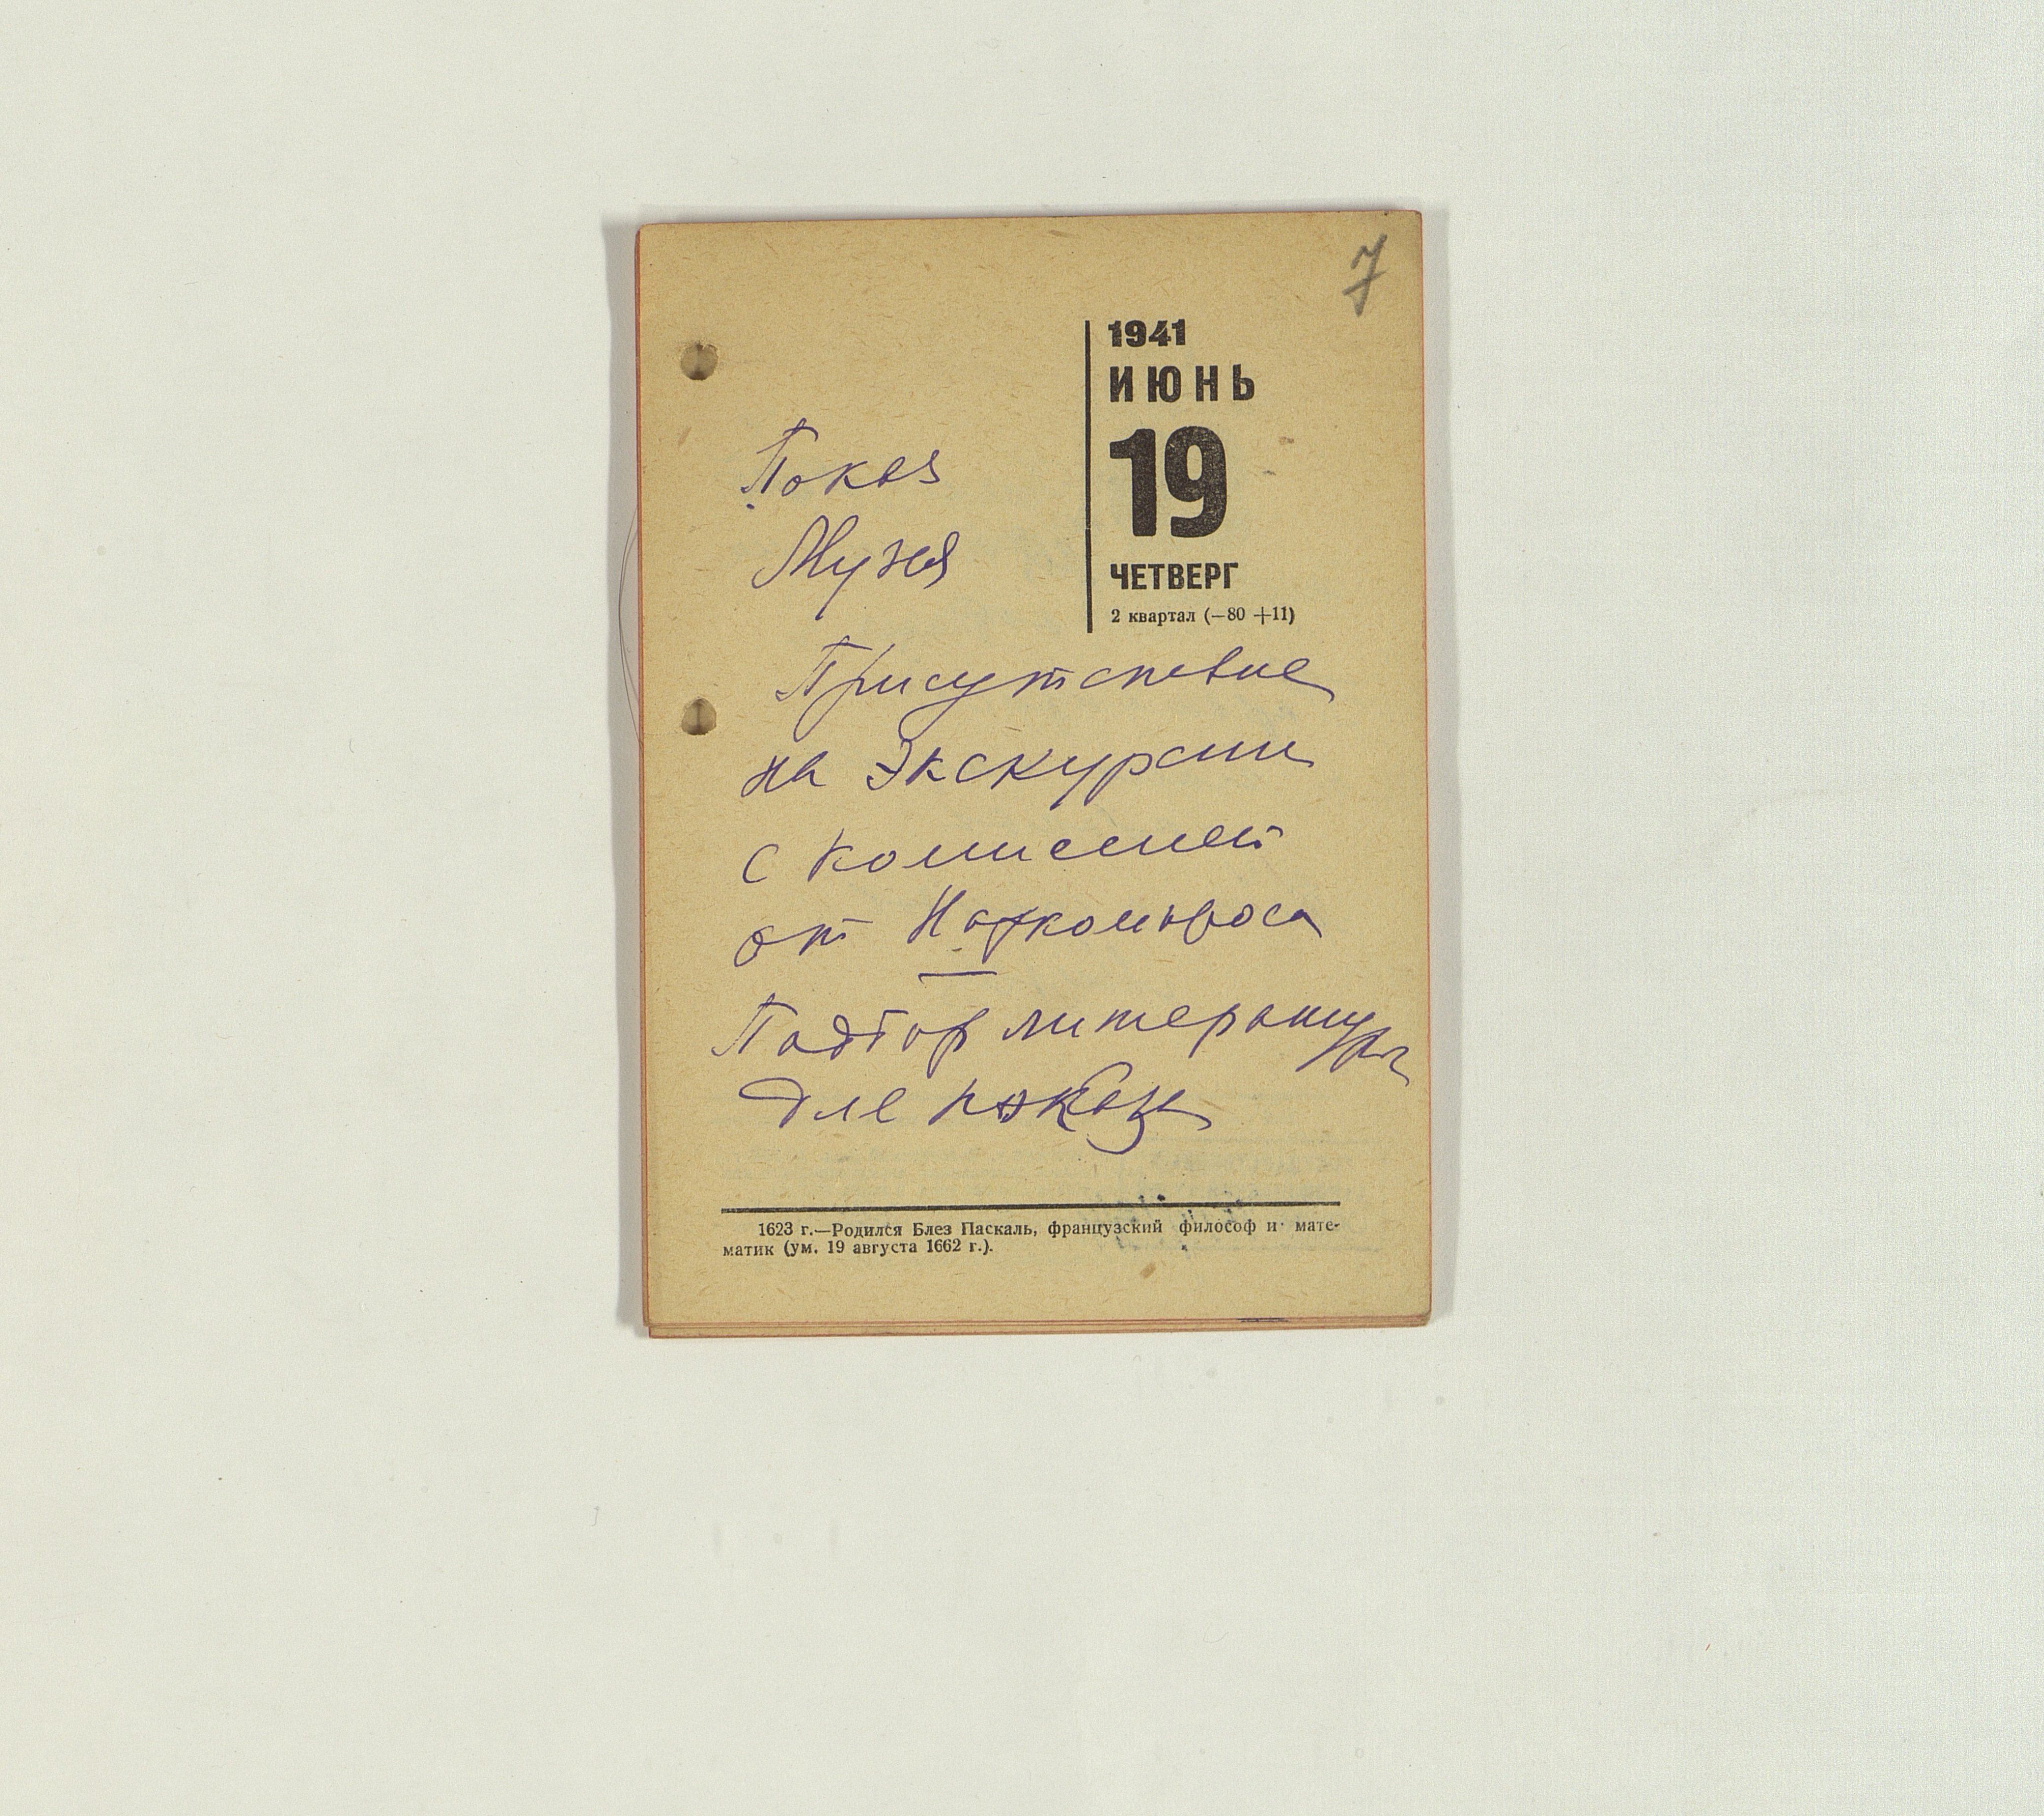 7
1941
ИЮНЬ
19
ЧЕТВЕРГ
2 квартал (—80 +11)
Показ
Музея
Присутствие
на Экскурсии
с комиссией
от Наркомпроса
Подбор литературы
для показа
1623 г.—Родился Блез Паскаль, французский философ и мате-
матик (ум. 19 августа 1662 г.).